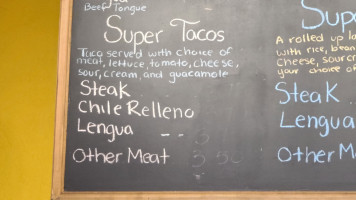 Beef Tongue
Super Tacos
Taco served with choice of
meat, lettuce, tomato, cheese,
sour cream, and guacamole
Steak
Chile Relleno
Lengua --
Other Meat
Sup
A rolled up
with rice, bean
cheese, sour cr
your choice of
Steak
Lengua
Other M